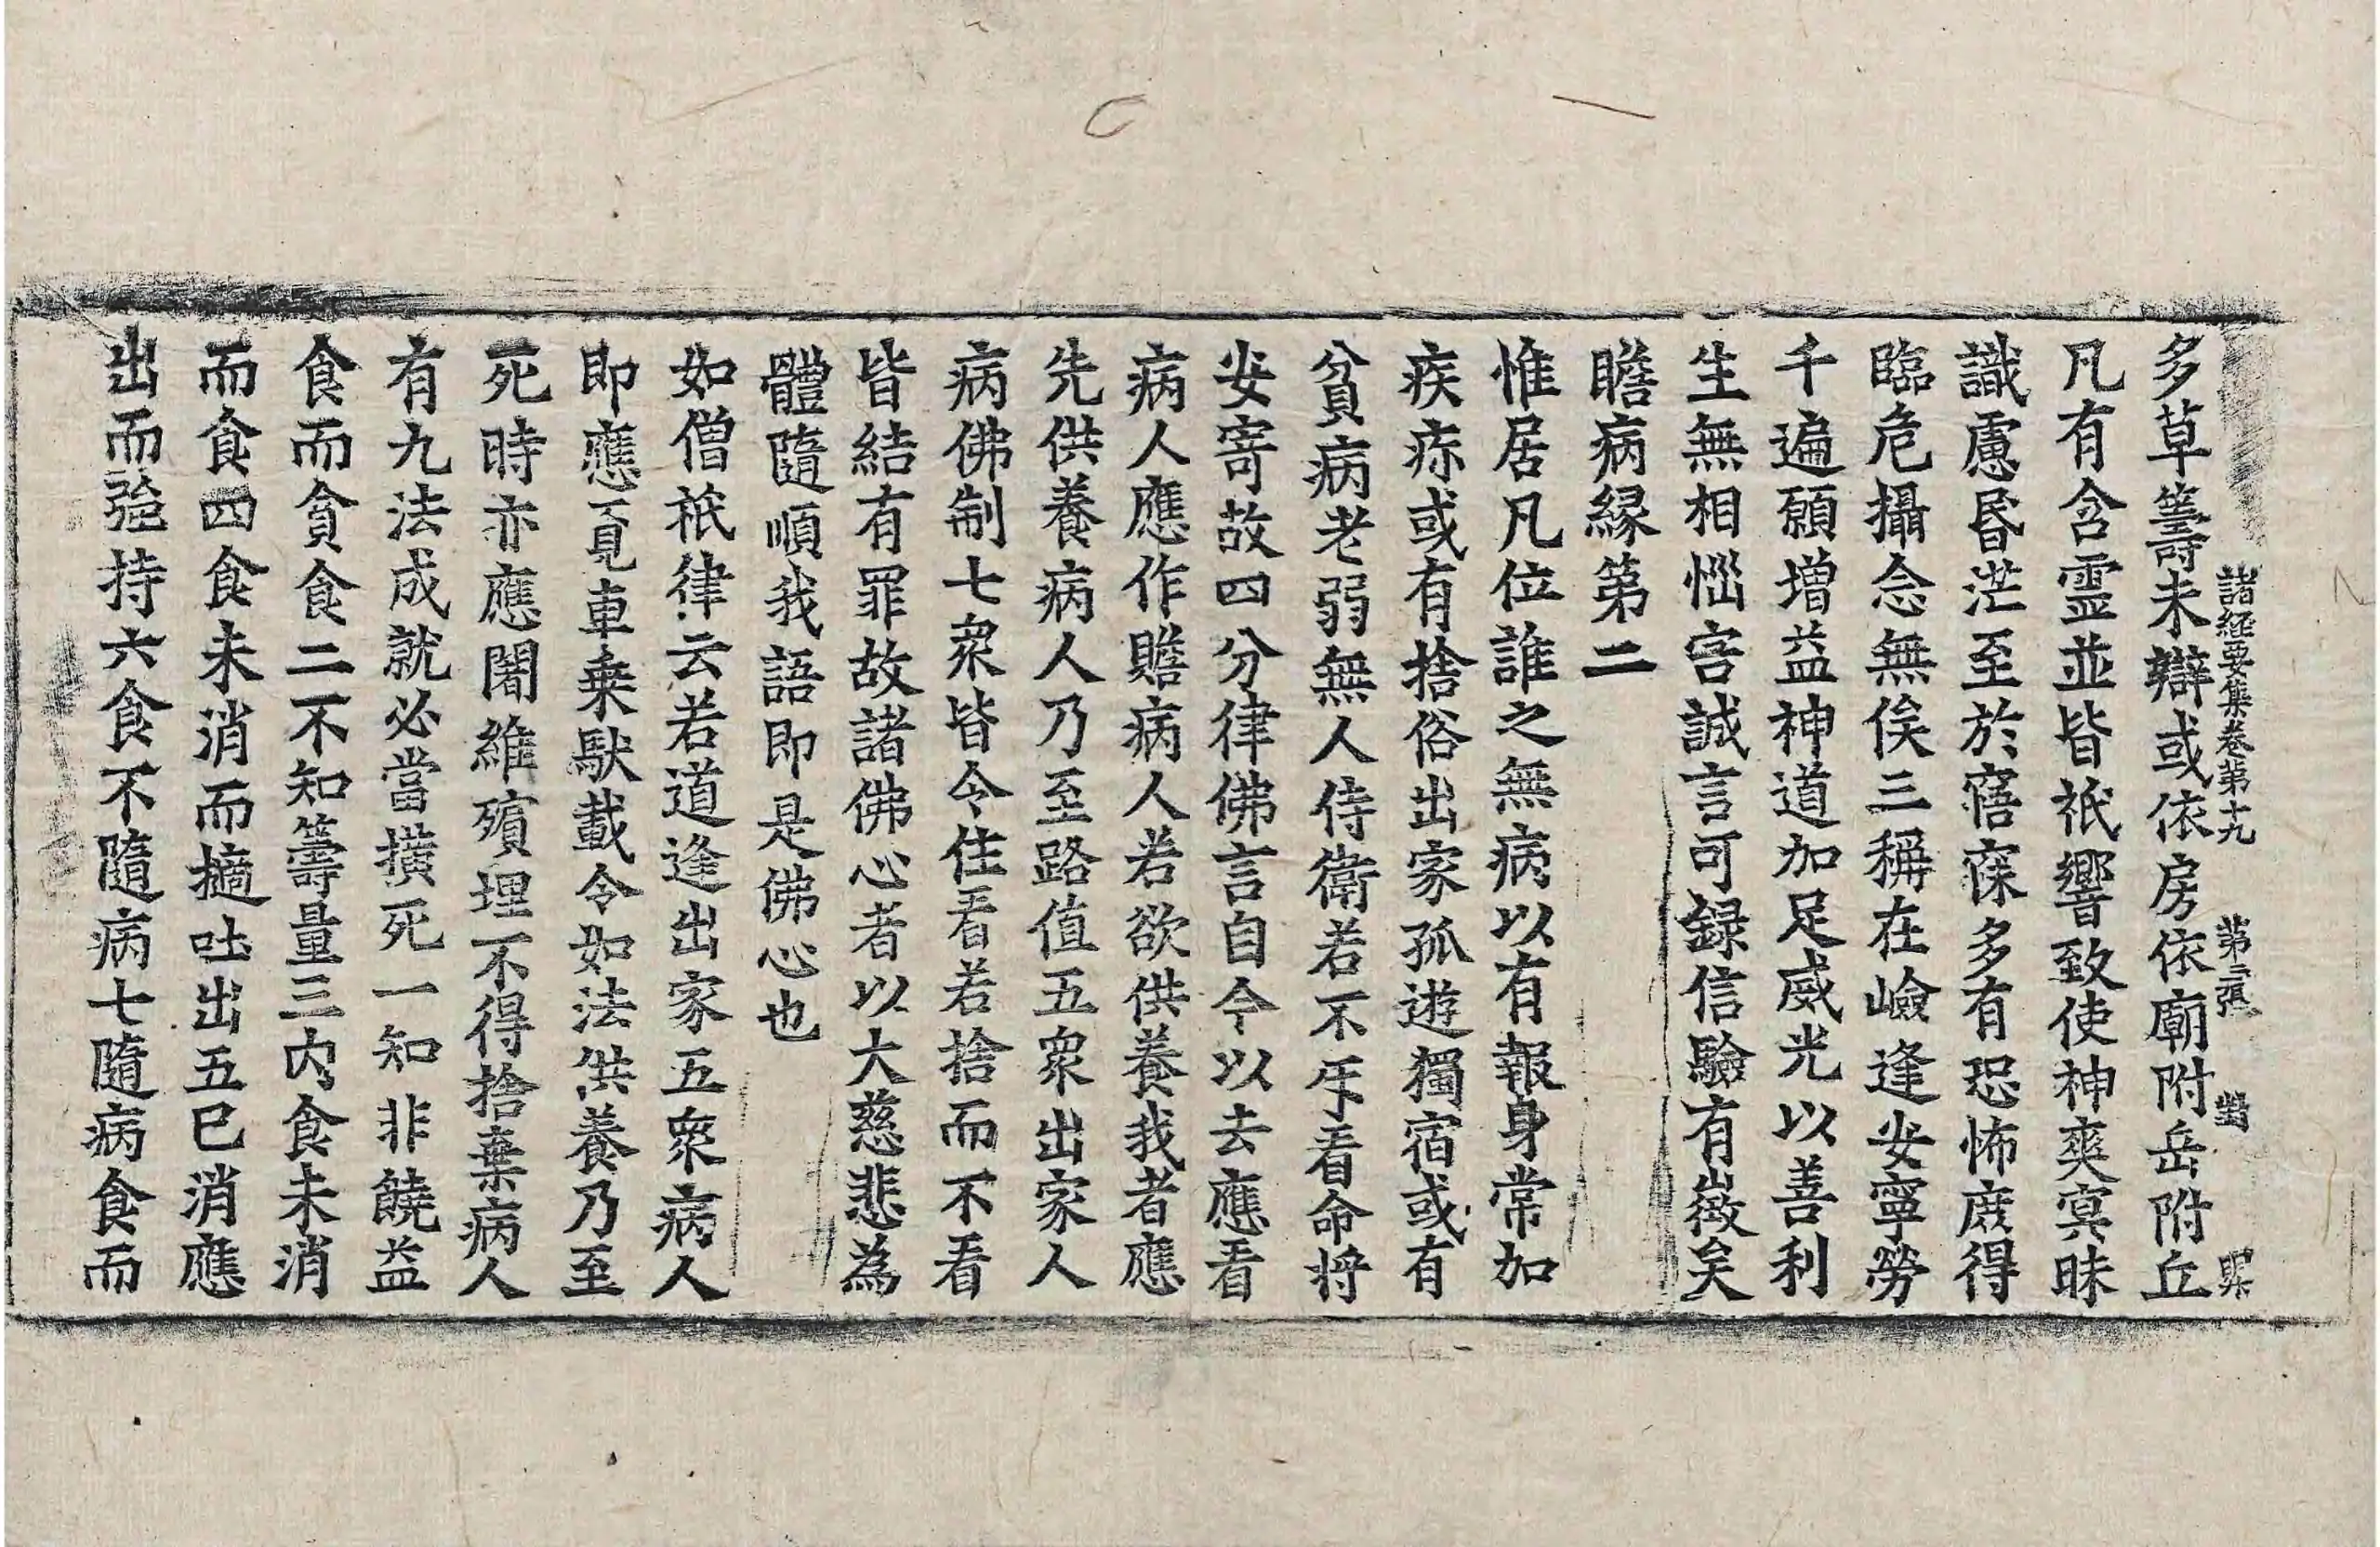 諸經要集卷第十九 第二張
多草籌未辯或依房依廟附岳附丘
凡有含靈並皆祇響致使神爽冥昧
識慮昬茫至於寤寐多有恐怖庶得
臨危攝念無俟三稱在嶮逢安寧勞
千遍願增益神道加足威光以善利
生無相惱害誠言可録信驗有徵矣
瞻病縁第二
惟居凡位誰之無病以有報身常加
疾疢或有捨俗出家孤遊獨宿或有
貧病老弱無人侍衛若不牙看命將
安寄故四分律佛言自今以去應看
病人應作瞻病人若欲供養我者應
先供養病人乃至路值五衆出家人
病佛制七衆皆令住看若捨而不看
皆結有罪故諸佛心者以大慈悲為
體隨順我語即是佛心也
如僧祇律云若道逢出家五衆病人
即應覓車乗馱載令如法供養乃至
死時亦應闍維殯埋不得捨棄病人
有九法成就必當横死一知非饒益
食而貪食二不知籌量三内食未消
而食四食未消而擿吐出五已消應
出而強持六食不隨病七隨病食而